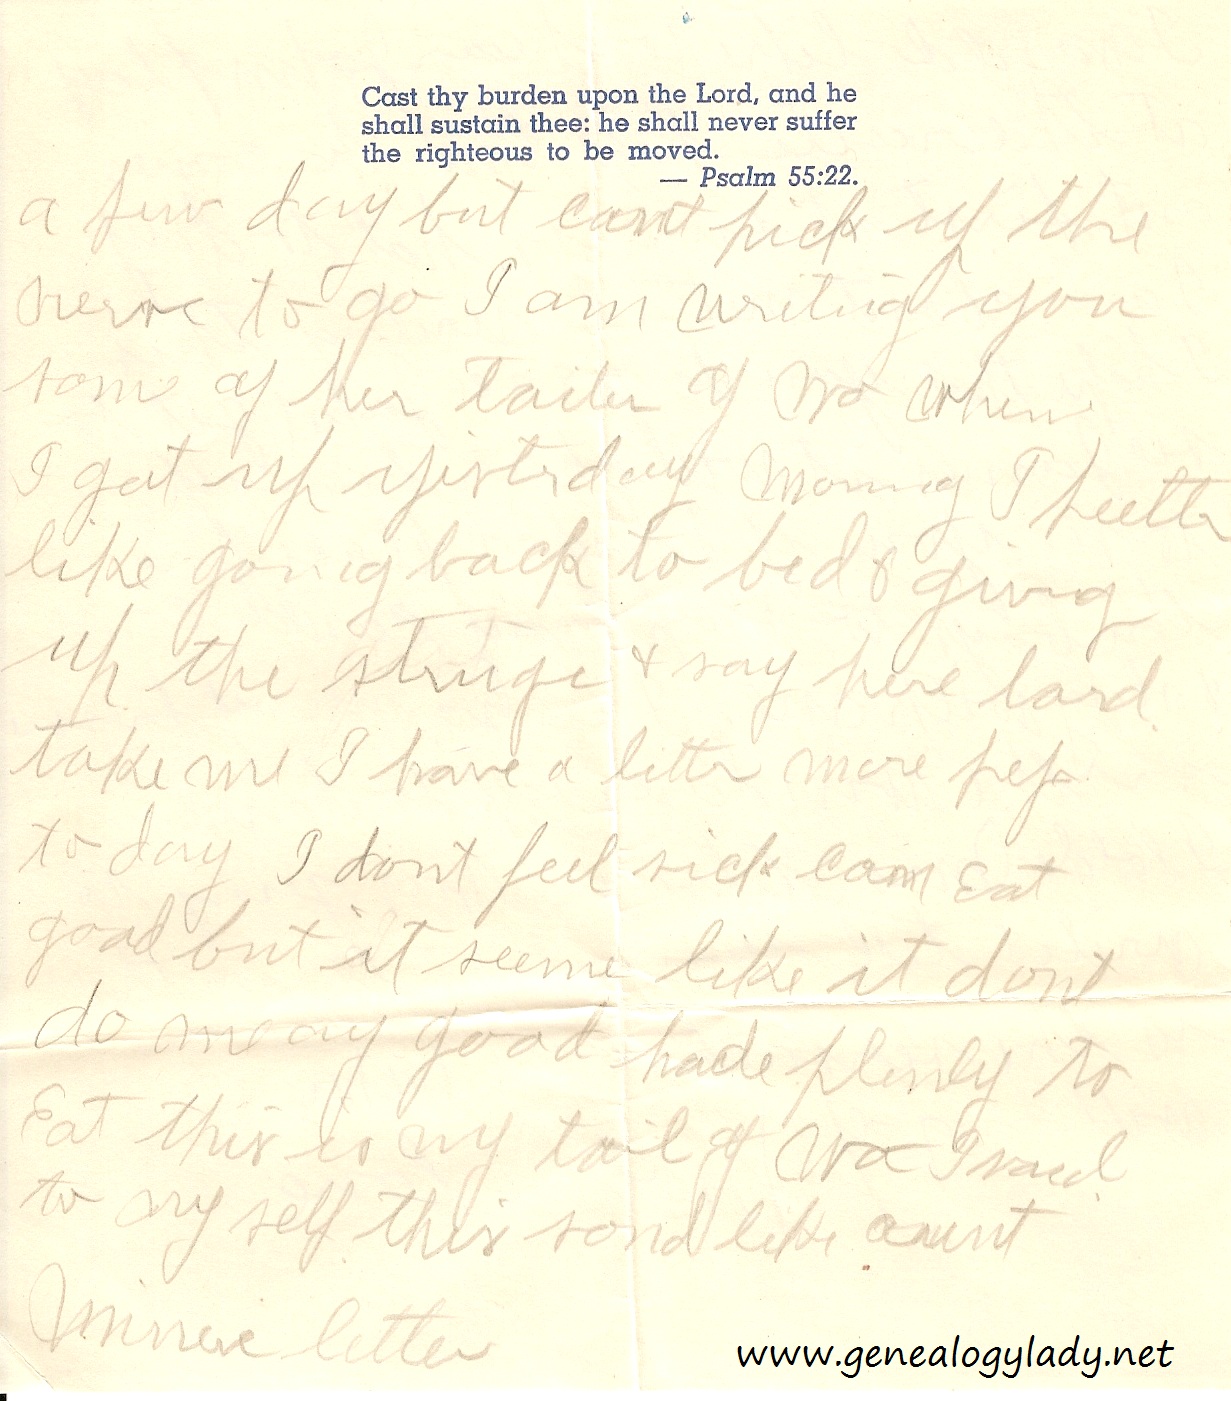 Cast thy burden upon the Lord, and he
shall sustain thee: he shall never suffer
the righteous to be moved.
— Psalm 55:22.
a few day but cant pick up the
nerve to go I am writing you
some of her tailer of wo when
I gat up yisterday morning I
like going back to bed & giving
up the struge & say here lord
take me I have a litter more pep
to day I dont feel sick can Eat
good but it seeme like it dont
do me any good hade plenly to
Eat this is my tail of wo I said
to my self this sond like aunt
Minnie letter
www.genealogylady.net